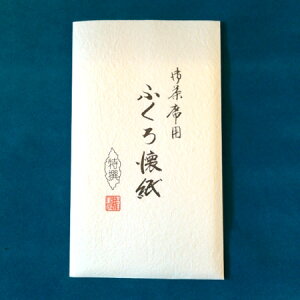 御茶席用
ふくろ懐紙
特撰